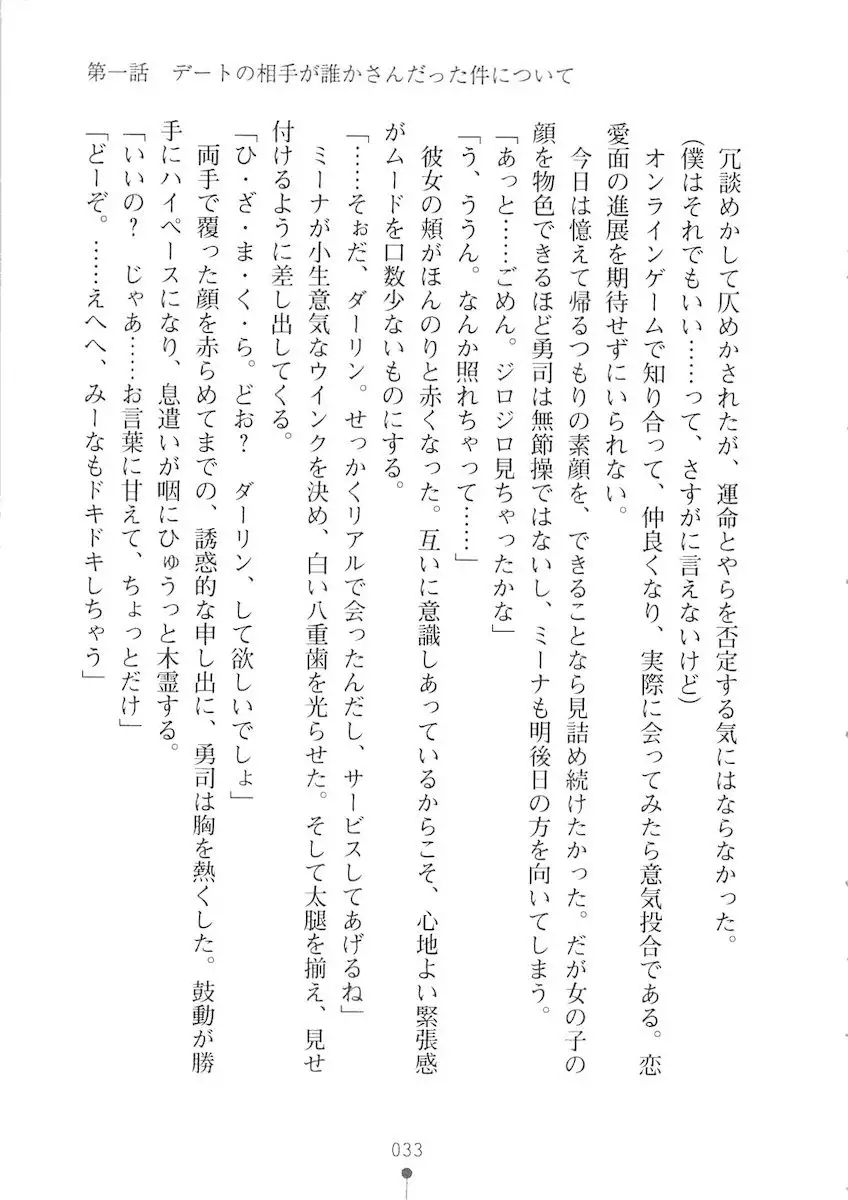 第一話　デートの相手が誰かさんだった件について
冗談めかして仄めかされたが、運命とやらを否定する気にはならなかった。
(僕はそれでもいい……って、さすがに言えないけど)
オンラインゲームで知り合って、仲良くなり、実際に会ってみたら意気投合である。恋
愛面の進展を期待せずにいられない。
今日は憶えて帰るつもりの素顔を、できることなら見詰め続けたかった。だが女の子の
顔を物色できるほど勇司は無節操ではないし、ミーナも明後日の方を向いてしまう。
「あっと……ごめん。ジロジロ見ちゃったかな」
「う、ううん。なんか照れちゃって……」
彼女の頬がほんのりと赤くなった。互いに意識しあっているからこそ、心地よい緊張感
がムードを口数少ないものにする。
「……そぉだ、ダーリン。せっかくリアルで会ったんだし、サービスしてあげるね」
ミーナが小生意気なウインクを決め、白い八重歯を光らせた。そして太腿を揃え、見せ
付けるように差し出してくる。
「ひ・ざ・ま・く・ら。どお?　ダーリン、して欲しいでしょ」
両手で覆った顔を赤らめてまでの、誘惑的な申し出に、勇司は胸を熱くした。鼓動が勝
手にハイペースになり、息遣いが咽にひゅうっと木霊する。
「いいの?　じゃあ……お言葉に甘えて、ちょっとだけ」
「どーぞ。……えへへ、みーなもドキドキしちゃう」
033